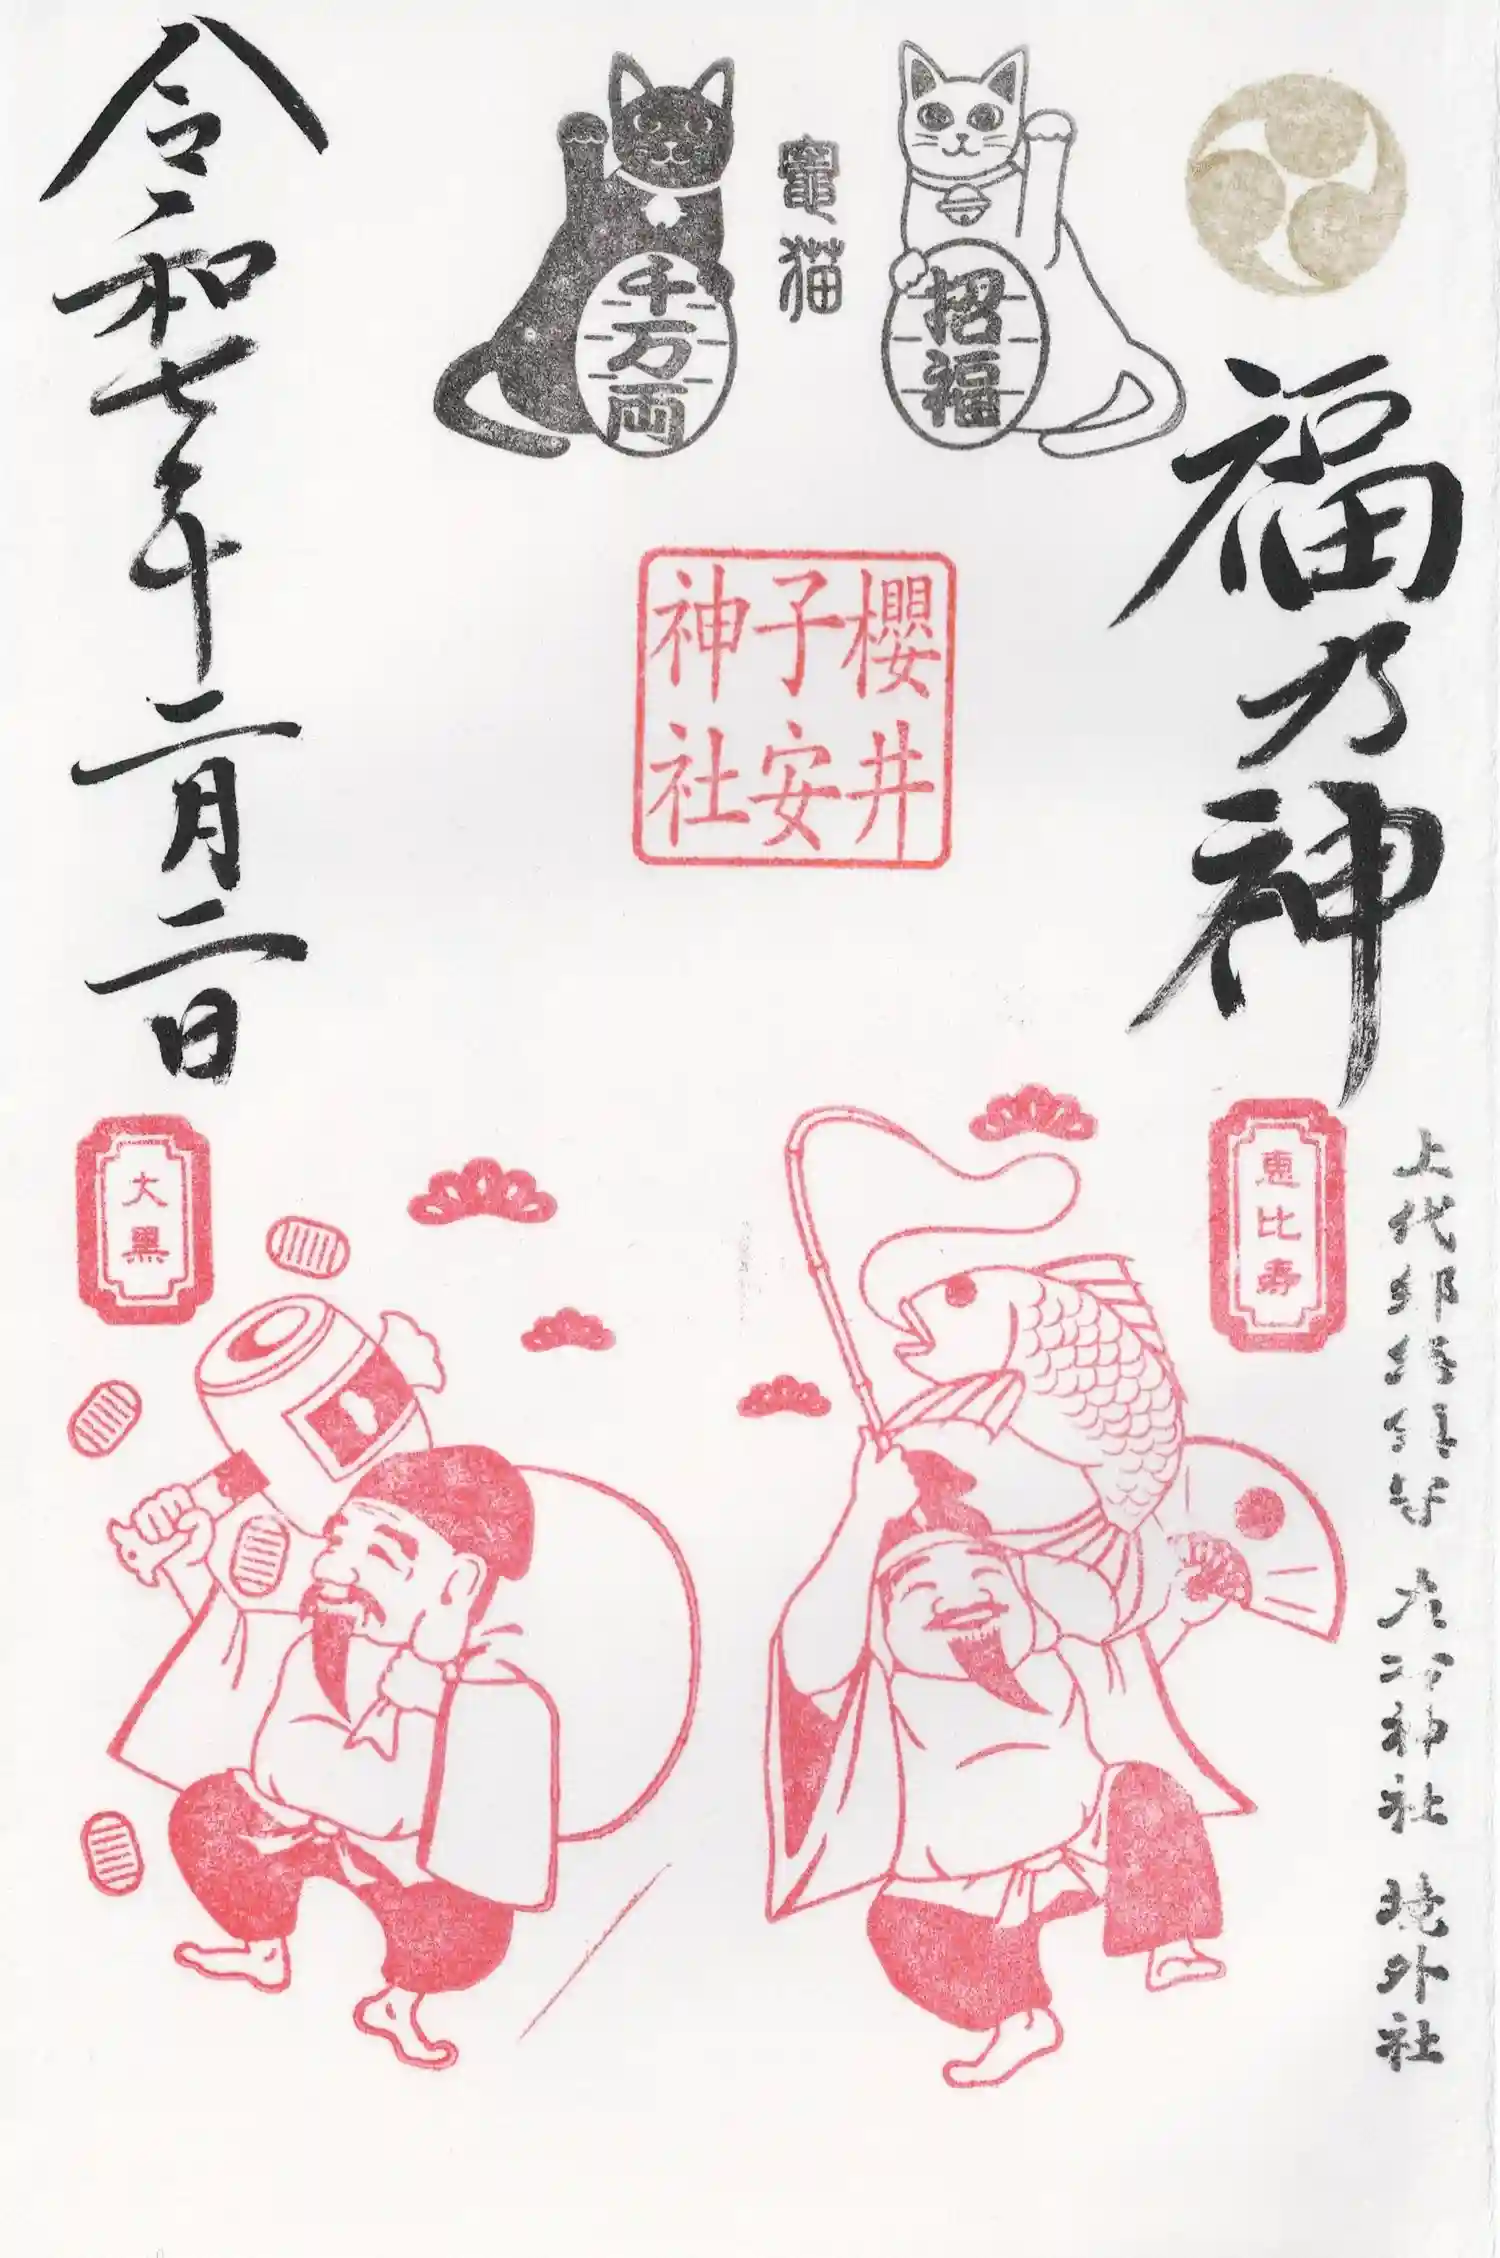 福乃神
上代郷総鎮守 神社 境外社
招福
竈猫
千万両
櫻井
子安
神社
恵比寿
大黒
令和七年二月二日